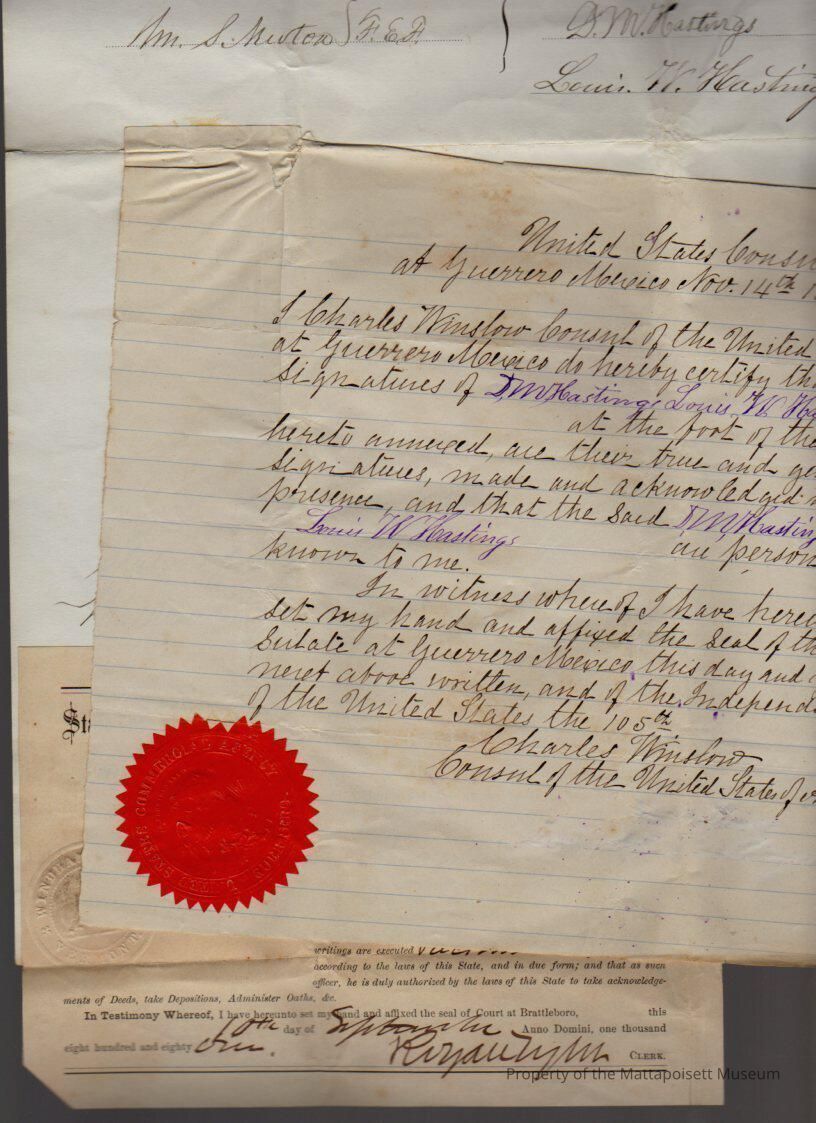 Wm. S. Newton
D. M. Hastings
Louis. W. Hasting
United States Consu
at Guerrero Mexico Nov. 14th 1
I Charles Winslow Consul of the United
at Guerrero Mexico do hereby certify tha
signatures of D, M, Hastings Louis. W. Ha
at the foot of the
hereto annexed, are their true and ge
signatures, made and acknowledged
presence, and that the said D, M, Hasting
Louis W Hastings are person
known to me.
In witness whereof I have hereu
set my hand and affixed the Seal of th
sulate at Guerrero Mexico this day and
next above written, and of the Independ
of the United States the 105th
Charles Winslow
Consul of the United States of
Sta
UNITED STATES COMMERCIAL AGENCY
GUERRERO
writings are executed
according to the laws of this State, and in due form; and that as such
officer, he is duly authorized by the laws of this State to take acknowledge-
ments of Deeds, take Depositions, Administer Oaths, &c.
In Testimony Whereof, I have hereunto set my hand and affixed the seal of Court at Brattleboro, this
10th day of September Anno Domini, one thousand
eight hundred and eighty one.
Royall Tyler CLERK.
Property of the Mattapoisett Museum